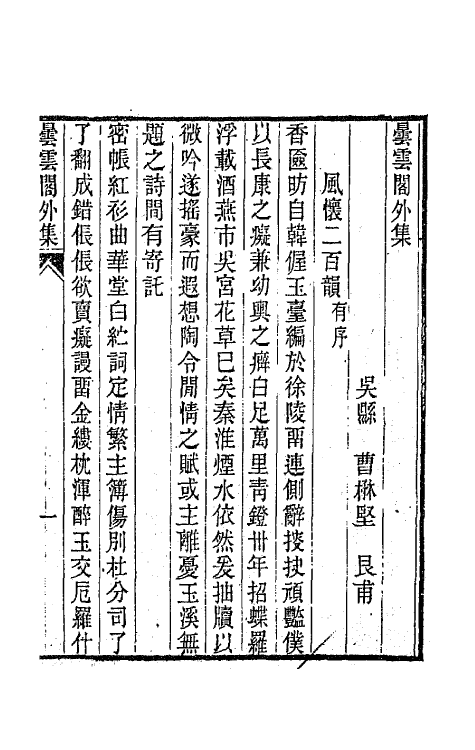 曇雲閣外集
吳縣　曹楙堅　艮甫
風懷二百韻有序
香匳昉自韓偓玉臺編於徐陵畱連側辭掞抰頑豔僕
以長康之癡兼幼輿之癖白足萬里靑鐙卅年招蝶羅
浮載酒燕市吳宮花草巳矣秦淮煙水依然爰抽牘以
微吟遂搖豪而遐想陶令閒情之賦或主離憂玉溪無
題之詩間有寄託
密帳紅衫曲華堂白紵詞定情繁主簿傷別杜分司了
了翻成錯倀倀欲賣癡謾畱金縷枕渾醉玉交卮羅什
曇雲閣外集
一